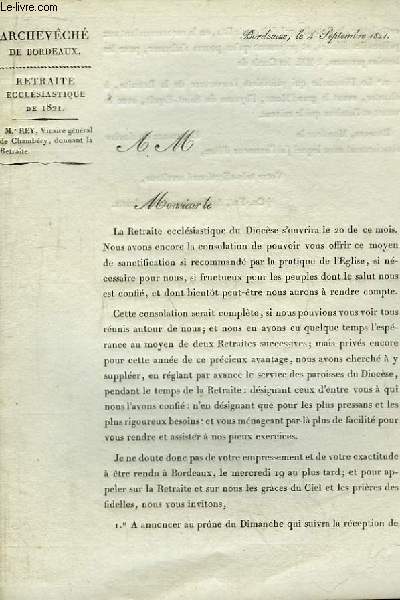 www.le-livre.com
ARCHEVÊCHÉ
DE BORDEAUX.
RETRAITE
ECCLÉSIASTIQUE
DE 1821.
M.r REY, Vicaire général
de Chambéry, donnant la
Retraite.
Bordeaux, le 4 Septembre 1821.
A M
Monsieur le
La Retraite ecclésiastique du Diocèse s'ouvrira le 20 de ce mois.
Nous avons encore la consolation de pouvoir vous offrir ce moyen
de sanctification si recommandé par la pratique de l'Eglise, si né-
cessaire pour nous, si fructueux pour les peuples dont le salut nous
est confié, et dont bientôt peut-être nous aurons à rendre compte.
Cette consolation serait complète, si nous pouvions vous voir tous
réunis autour de nous; et nous en avons eu quelque temps l'espé-
rance au moyen de deux Retraites successives; mais privés encore
pour cette année de ce précieux avantage, nous avons cherché à y
suppléer, en réglant par avance le service des paroisses du Diocèse,
pendant le temps de la Retraite: désignant ceux d'entre vous à qui
nous l'avons confié: n'en désignant que pour les plus pressans et les
plus rigoureux besoins: et vous ménageant par-là plus de facilité pour
vous rendre et assister à nos pieux exercices.
Je ne doute donc pas de votre empressement et de votre exactitude
à être rendu à Bordeaux, le mercredi 19 au plus tard; et pour ap-
peler sur la Retraite et sur nous les grâces du Ciel et les prières des
fidelles, nous vous invitons,
1.º A annoncer au prône du Dimanche qui suivra la réception de